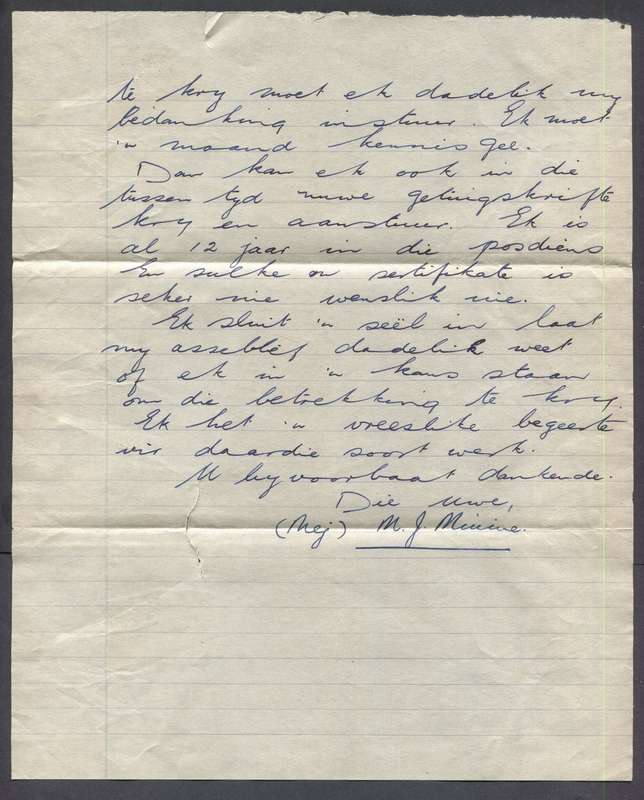 te kry moet ek dadelik my
bedanking instuur. Ek moet
'n maand kennis gee.
Dan kan ek ook in die
tussen tyd nuwe getuigskrifte
kry en aanstuur. Ek is
al 12 jaar in die posdiens
En sulke ou sertifikate is
seker nie wenslik nie.
Ek sluit 'n seël in laat
my asseblief dadelik weet
of ek in 'n kans staan
om die betrekking te kry.
Ek het 'n vreeslike begeerte
vir daardie soort werk.
U byvoorbaat dankende.
Die uwe,
(Mej) M. J.